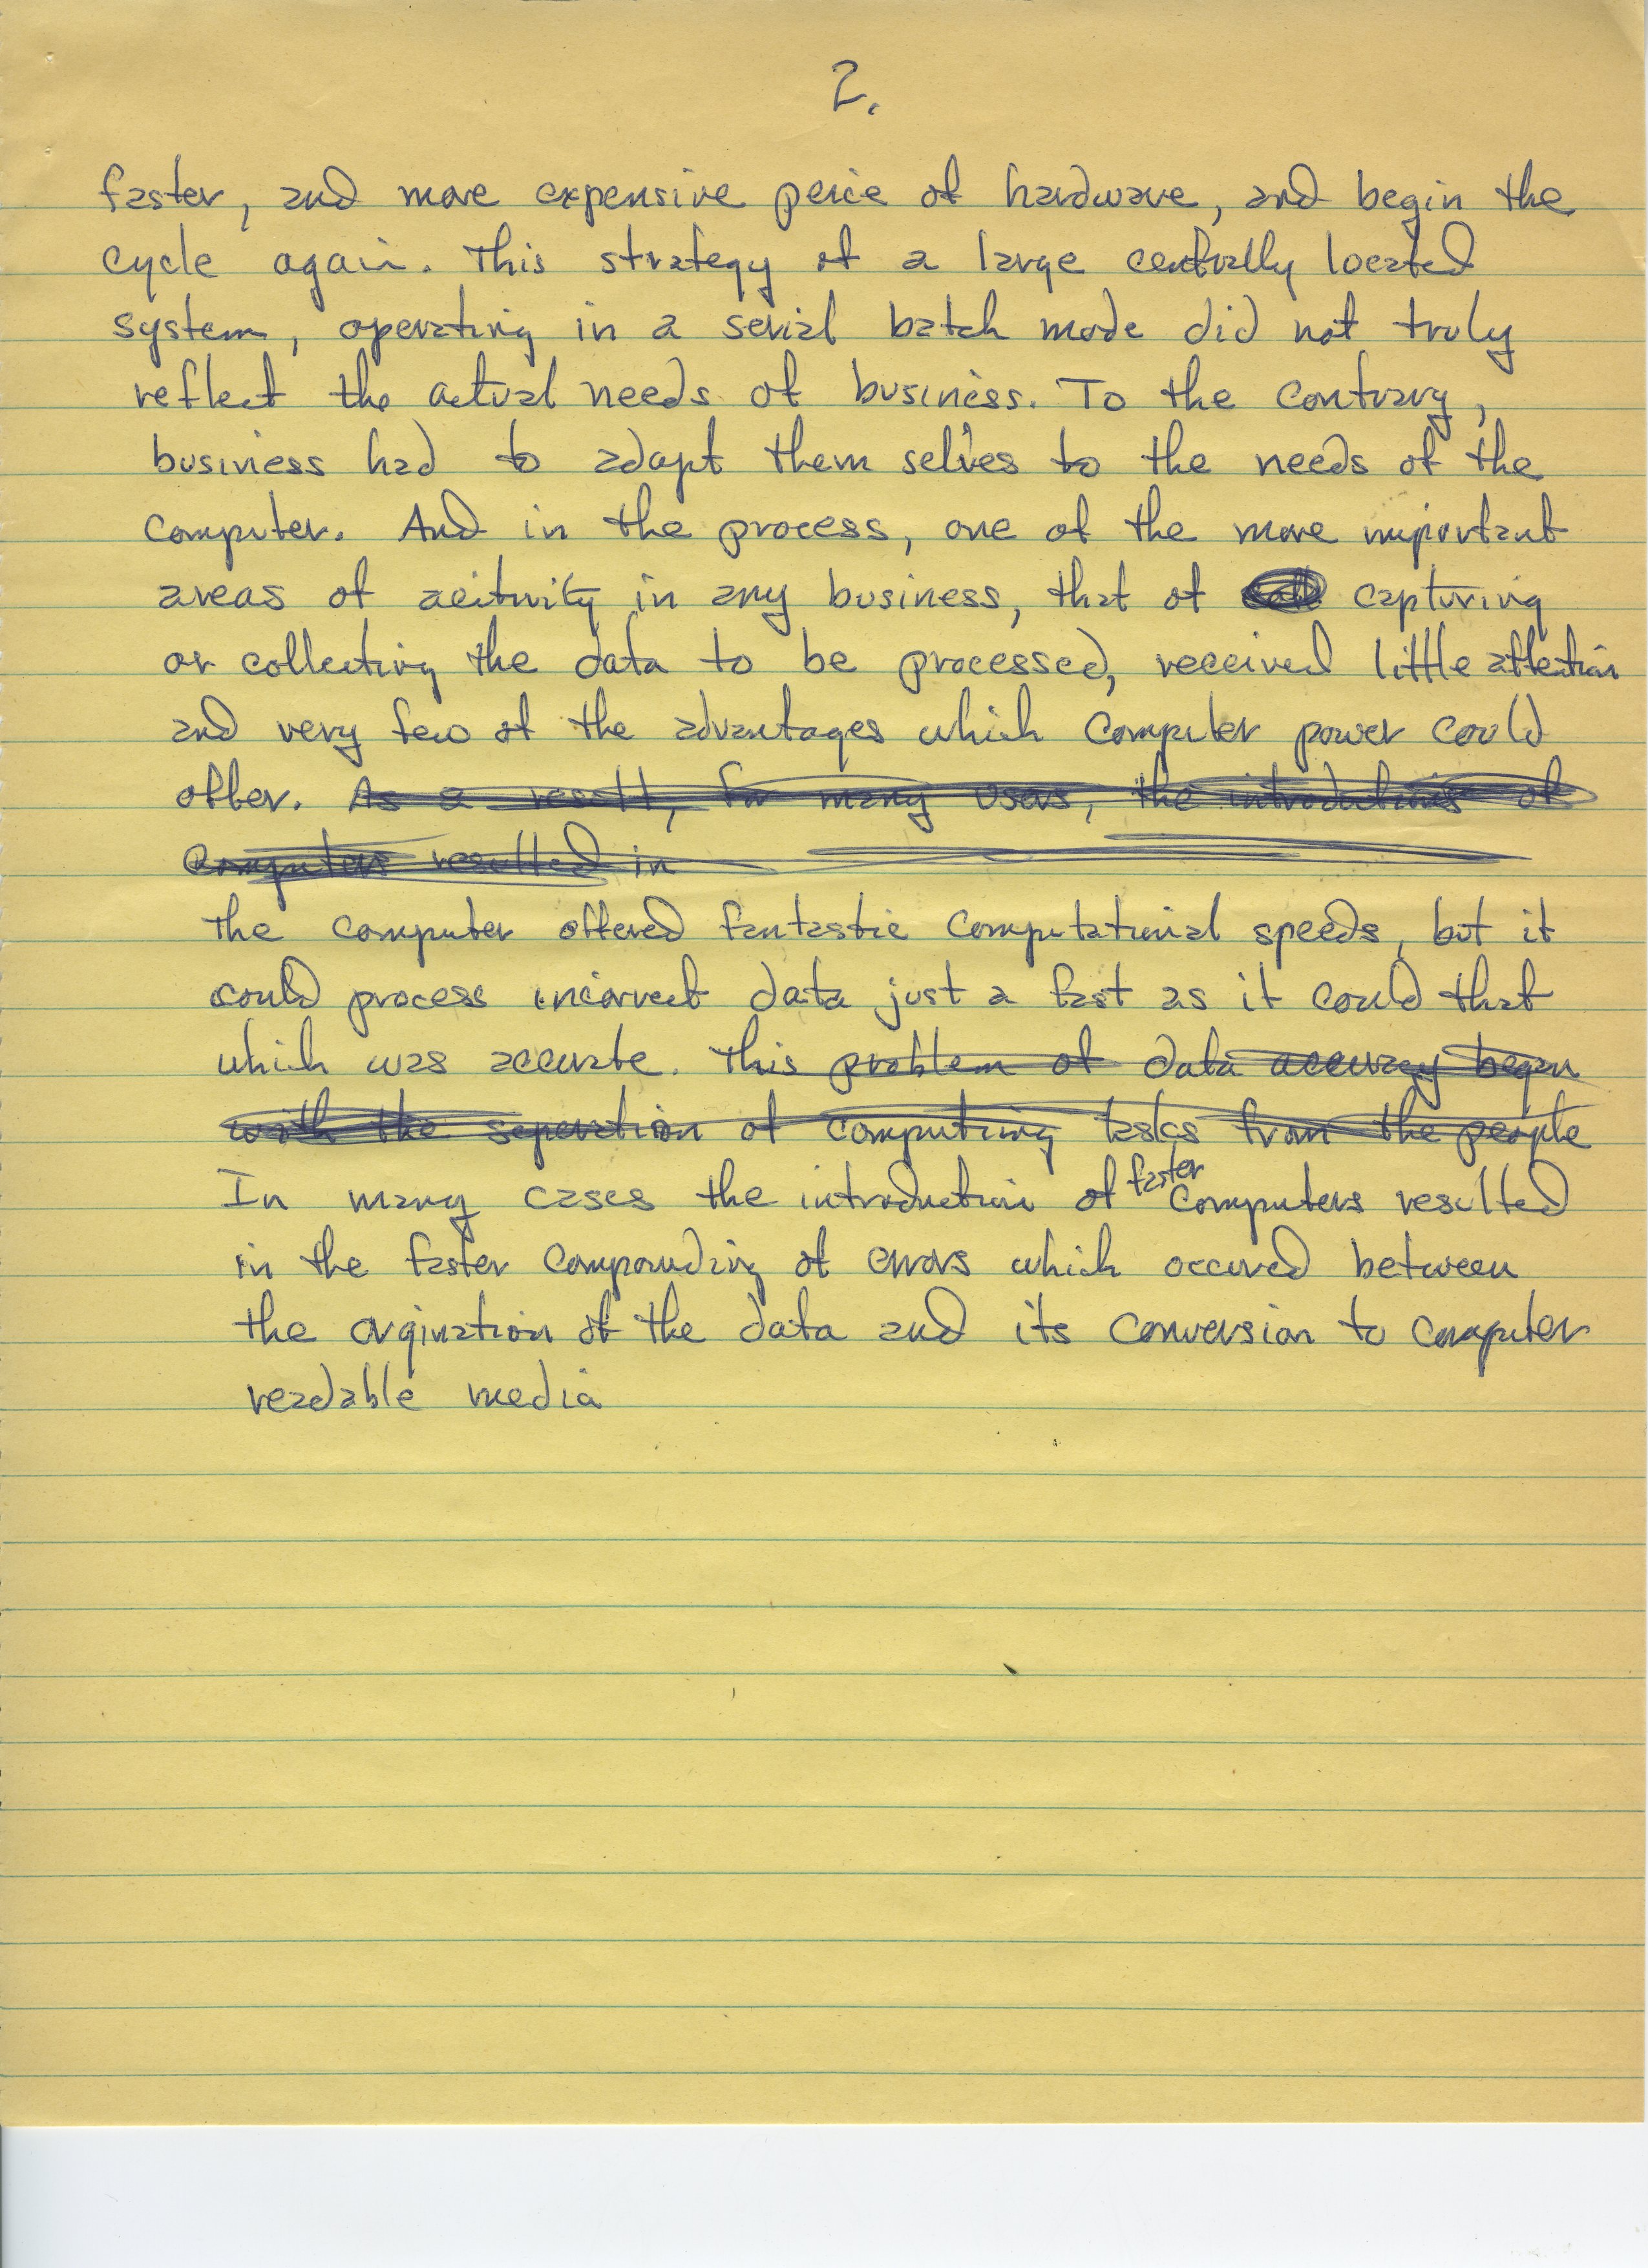 2.
faster, and more expensive peice of hardware, and begin the
cycle again. This strategy of a large centrally located
system, operating in a serial batch mode did not truly
reflect the actual needs of business. To the contrary,
business had to adapt them selves to the needs of the
computer. And in the process, one of the more important
areas of acitivity in any business, that of capturing
or collecting the data to be processed, received little attention
and very few of the advantages which computer power could
offer. As a result, for many users, the introductions of
computers resulted in
The computer offered fantastic computational speeds, but it
could process incorrect data just a fast as it could that
which was accurate. This problem of data accuracy began
with the seperation of computing tasks from the people
In many cases the introduction of faster computers resulted
in the faster compounding of errors which occured between
the orgination of the data and its conversion to computer
readable media